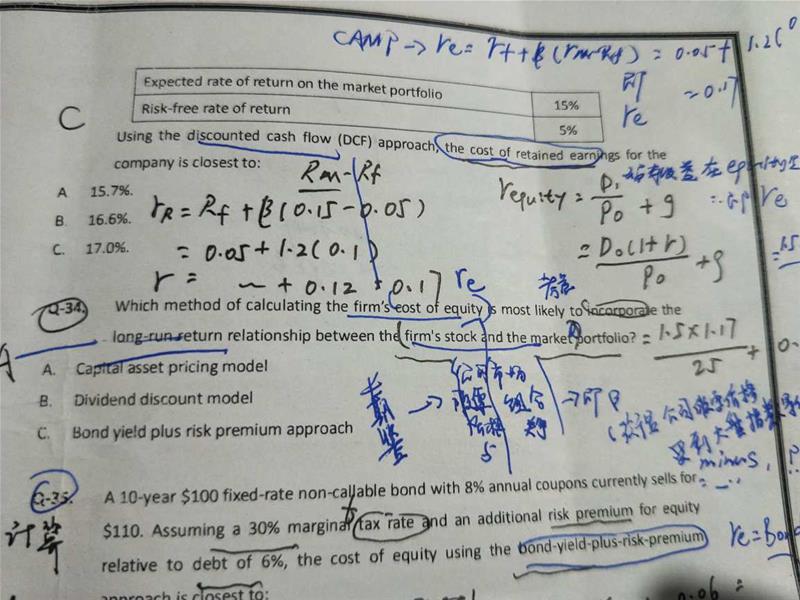 CAMP → re = rf + β(rm-Rf) = 0.05 + 1.2(0
即 = 0.17
re
Expected rate of return on the market portfolio 15%
Risk-free rate of return 5%
C
Using the discounted cash flow (DCF) approach, the cost of retained earnings for the
company is closest to:
Rm-Rf
A 15.7%.
B. 16.6%.
C. 17.0%.
rR = Rf + β(0.15 - 0.05)
= 0.05 + 1.2(0.1)
r = ~ + 0.12 = 0.17 re
requity = D1/P0 + g
= D0(1+r)/P0 + g
= 1.5×1.17/25 + 0.
Q-34. Which method of calculating the firm's cost of equity is most likely to incorporate the
long-run return relationship between the firm's stock and the market portfolio?
A. Capital asset pricing model
B. Dividend discount model
C. Bond yield plus risk premium approach
长期 → 公司 市场
股票 组合
→ 即β
minus,
Q-35. A 10-year $100 fixed-rate non-callable bond with 8% annual coupons currently sells for
计算
$110. Assuming a 30% marginal tax rate and an additional risk premium for equity
relative to debt of 6%, the cost of equity using the bond-yield-plus-risk-premium
re = Bon
approach is closest to:
0.06 =